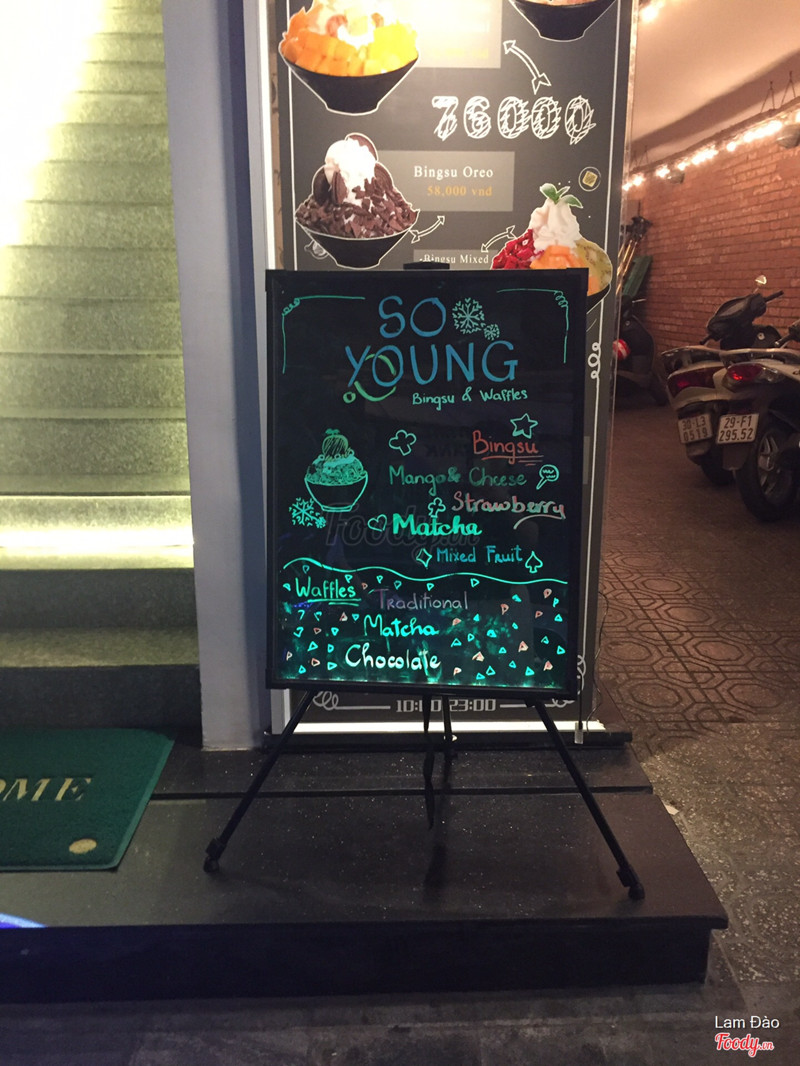 76000
Bingsu Oreo
58,000 vnd
-Bingsu Mixed
SO
YOUNG
Bingsu & Waffles
Bingsu
Mango & Cheese
Strawberry
Matcha
Foody.vn
Mixed Fruit
Waffles
Traditional
Matcha
Chocolate
23:00
OME
30-L3
0519
29-F1
295.52
Lam Đào
Foody.vn